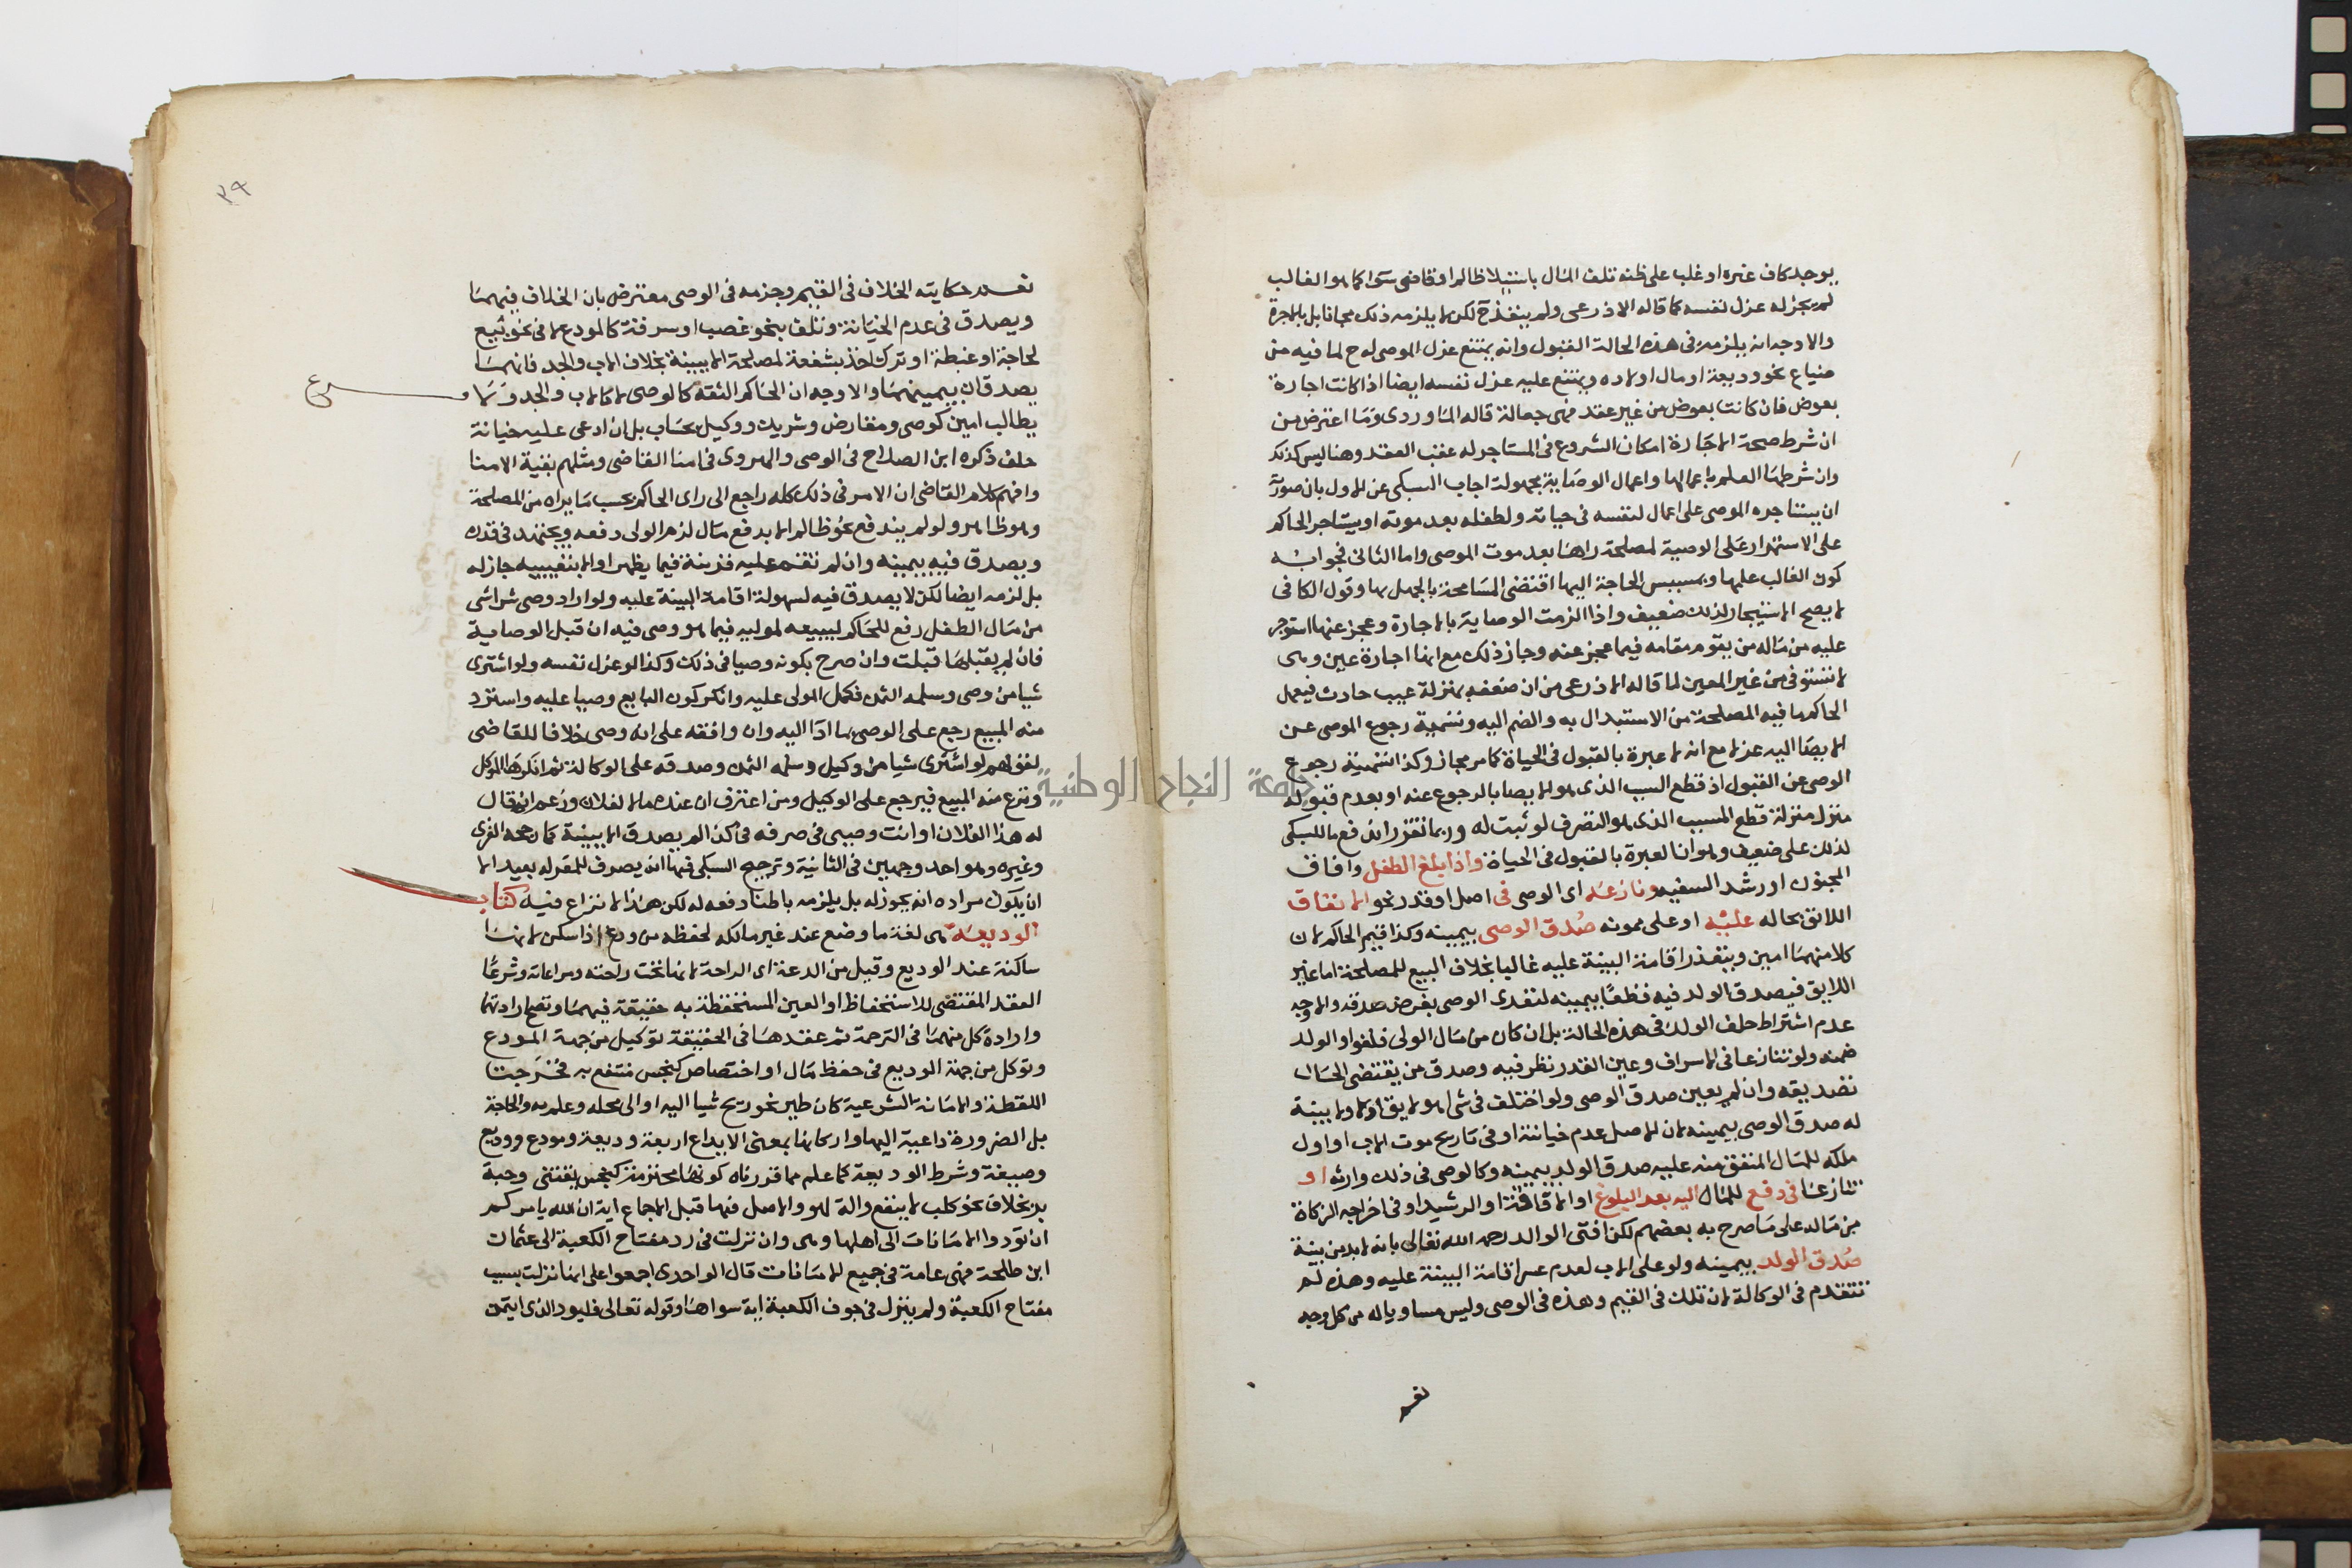 يوجد كاف غيره او غلب على ظنه تلف المال باستيلا ظالم او قاضى سوا كما هو الغالب
لم يجز له عزل نفسه كما قاله الاذرعى ولم ينفذ ح لكن لا يلزمه ذلك مجانا بل بالاجرة
والاوجه انه يلزمه فى هذه الحالة القبول وانه يمتنع عزل الموصى له ح لما فيه من
ضياع نحو وديعة او مال اولاده ويمتنع عليه عزل نفسه ايضا اذا كانت اجارة
بعوض فان كانت بعوض من غير عقد فهى جعالة قاله الماوردى وما اعترض من
ان شرط صحة الاجارة امكان الشروع فى المستاجر له عقب العقد وهنا ليس كذلك
وان شرطها العلم باعمالها واعمال الوصاية مجهولة اجاب السبكى عن الاول بان صورته
ان يستاجره الموصى على اعمال لنفسه فى حياته ولطفله بعد موته او يستاجر الحاكم
على الاستمرار على الوصية لمصلحة راها بعد موت الموصى واما الثانى فجوابه
كون الغالب علمها وبمسيس الحاجة اليها اقتضى المسامحة بالجهل بها وقول الكافى
لا يصح الاستيجار لذلك ضعيف واذا الزمت الوصاية بالاجارة وعجز عنها استوجر
عليه من ماله من يقوم مقامه فيما عجز عنه وجاز ذلك مع انها اجارة عين وهى
لا تستوفى من غير المعين لما قاله الاذرعى من ان ضعفه بمنزلة عيب حادث فيعمل
الحاكم ما فيه المصلحة من الاستبدال به والضم اليه وتسمية رجوع الموصى عن
الايصا اليه عزلا مع انه لا عبرة بالقبول فى الحياة كما مر مجاز وكذا تسمية رجوع
الوصى عن القبول اذ قطع السبب الذى هو الايصا بالرجوع عنه او بعدم قبوله
منزل منزلة قطع المسبب الذى هو التصرف لو ثبت له وربما تقرر اندفع ما للسبكى
لذلك على ضعيف وهو ان العبرة بالقبول فى الحياة واذا بلغ الطفل وافاق
المجنون او رشد السفيه ونازعه اى الوصى فى اصل او قدر نحو الانفاق
اللائق بحاله عليه او على ممونه صدق الوصى بيمينه وكذا قيم الحاكم لان
كلا منهما امين ويتعذر اقامة البينة عليه غالبا بخلاف البيع للمصلحة اما غير
اللايق فيصدق الولد فيه قطعا بيمينه لتعدى الوصى بفرض صدقه والاوجه
عدم اشتراط حلف الولد فى هذه الحالة بل ان كان من مال الولى فلغو او الولد
ضمنه ولو تنازعا فى الاسراف وعين القدر نظر فيه وصدق من يقتضى الحال
تصديقه وان لم يعين صدق الوصى ولو اختلف فى شى اهو لايق اولا ولا بينة
له صدق الوصى بيمينه لان الاصل عدم خيانته او فى تاريخ موت الاب او اول
ملكه للمال المنفق منه عليه صدق الولد بيمينه وكالوصى فى ذلك وارثه او
تنازعا فى دفع للمال اليه بعد البلوغ او الافاقة او الرشيد او فى اخراجه الزكاة
من ماله على ما صرح به بعضهم لكن افتى الوالد رحمه الله تعالى بانه لا بد من بينة
صدق الولد بيمينه ولو على الاب لعدم عسر اقامة البينة عليه وهذه لم
تتقدم فى الوكالة لان تلك فى القيم وهذه فى الوصى وليس مساويا له من كل وجه
٣٩
حكايته الخلاف فى القيم وجزمه فى الوصى معترض بان الخلاف فيهما
ويصدق فى عدم الخيانة وتلف بنحو غصب او سرقة كالمودع لا فى نحو بيع
لحاجة او غبطة او ترك اخذ بشفعة لمصلحة الا ببينة بخلاف الاب والجد فانهما
يصدقان بيمينهما والاوجه ان الحاكم الثقة كالوصى لا كالاب والجد ولا
يطالب امين كوصى ومقارض وشريك ووكيل بحساب بل ان ادعى عليه خيانة
حلف ذكره ابن الصلاح فى الوصى والهروى فى امنا القاضى ومثلهم بقية الامنا
وافهم كلام القاضى ان الامر فى ذلك كله راجع الى راى الحاكم بحسب ما يراه من المصلحة
وهو ظاهر ولو لم يندفع نحو ظالم الا بدفع مال لزم الولى دفعه ويجتهد فى قدره
ويصدق فيه بيمينه وان لم تقم عليه قرينة فيما يظهر او الا بتعييبه جاز له
بل لزمه ايضا لكن لا يصدق فيه لسهولة اقامة البينة عليه ولو اراد وصى شرا شى
من مال الطفل رفع للحاكم ليبيعه لموليه فيما هو وصى فيه ان قبل الوصاية
فان لم يقبلها قبلت وان صرح بكونه وصيا فى ذلك وكذا لو عزل نفسه ولو اشترى
شيا من وصى وسلمه الثمن فكمل المولى عليه وانكر كون البايع وصيا عليه واسترد
منه المبيع رجع على الوصى بما ادا اليه وان وافقه على انه وصى خلافا للقاضى
لقولهم لو اشترى شيا من وكيل وسلمه الثمن وصدقه على الوكالة ثم انكرها الموكل
ونزع منه المبيع فيرجع على الوكيل ومن اعترف ان عنده مالا لفلان وزعم انه قال
له هذا لفلان او انت وصيى فى صرفه فى كذا لم يصدق الا ببينة كما رجحه الغزى
وغيره وهو احد وجهين فى الثانية وترجيح السبكى فيها انه يصرف للمقر له بعيد الا
ان يكون مراده انه يجوز له بل يلزمه باطنا دفعه له لكن هذا لا نزاع فيه كتاب
الوديعة هى لغة ما وضع عند غير مالكه لحفظه من ودع اذا سكن لانها
ساكنة عند الوديع وقيل من الدعة اى الراحة لانها تحت راحته ومراعاته وشرعا
العقد المقتضى للاستحفاظ او العين المستحفظة به حقيقة فيهما وتصح ارادتها
وارادة كل منهما فى الترجمة ثم عقدها فى الحقيقة توكيل من جهة المودع
وتوكل من جهة الوديع فى حفظ مال او اختصاص كنجس منتفع به فخرجت
اللقطة والامانة الشرعية كان طير نحو ريح شيا اليه او الى محله وعلم به والحاجة
بل الضرورة داعية اليها واركانها بمعنى الايداع اربعة وديعة ومودع ووديع
وصيغة وشرط الوديعة كما علم مما قررناه كونها محترمة كنجس يقتنى وحبة
بر بخلاف نحو كلب لا ينفع والة لهو والاصل فيها قبل الاجماع اية ان الله يامركم
ان تودوا الامانات الى اهلها وهى وان نزلت فى رد مفتاح الكعبة الى عثمان
ابن طلحة فهى عامة فى جميع للامانات قال الواحدى اجمعوا على انها نزلت بسبب
مفتاح الكعبة ولم ينزل فى جوف الكعبة اية سواها وقوله تعالى فليود الذى ايتمن
جامعة النجاح الوطنية